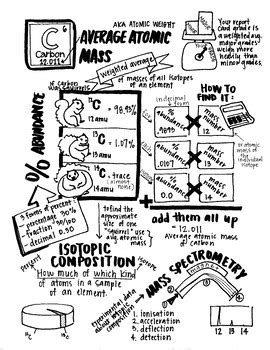 6
C
Carbon
12.011
AKA ATOMIC WEIGHT
AVERAGE ATOMIC
MASS
Your report
card grade is
a weighted avg.
major grades
weigh more
heavily than
minor grades.
weighted average
of masses of all isotopes
of an element
if carbon was squirrels
% ABUNDANCE
12C = 98.93%
12 amu
13C = 1.07%
13 amu
14C = trace
(almost
none)
14 amu
HOW TO
FIND IT:
in decimal
form
% abundance
.9893
X
mass
number
12
% abundance
.0107
X
mass
number
13
% abundance
0.0
X
mass
number
14
or atomic
mass of
the individual
isotope
+
add them all up
= 12.011
Average atomic mass
of carbon
3 forms of percents:
percentage 30%
fraction 30/100
decimal 0.30
to find the
approximate
size of one
squirrel use
avg atomic
mass
ISOTOPIC
COMPOSITION
percent
How much of which kind
of atoms in a sample
of an element.
13C
12C
Experimental data
about isotopic
composition
MASS SPECTROMETRY
magnet
1. ionisation
2. acceleration
3. deflection
4. detection
12 13 14